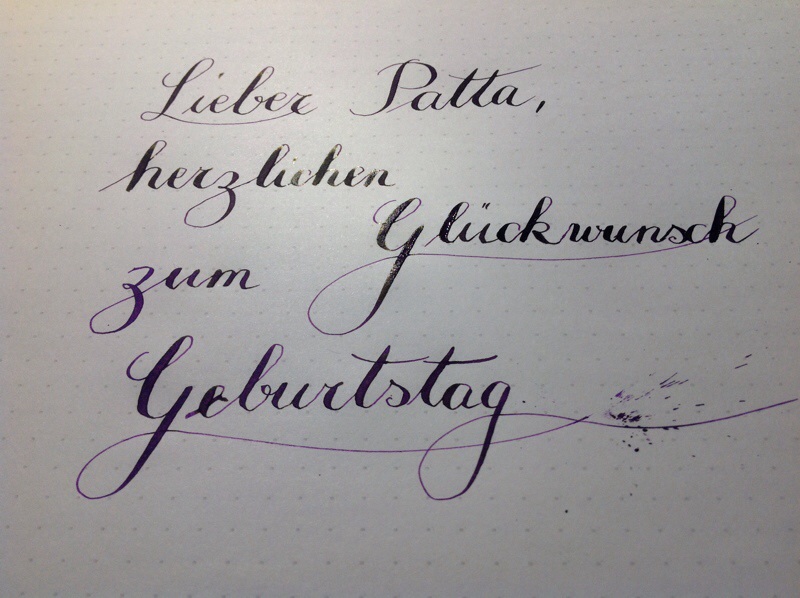 Lieber Patta,
herzlichen
Glückwunsch
zum
Geburtstag